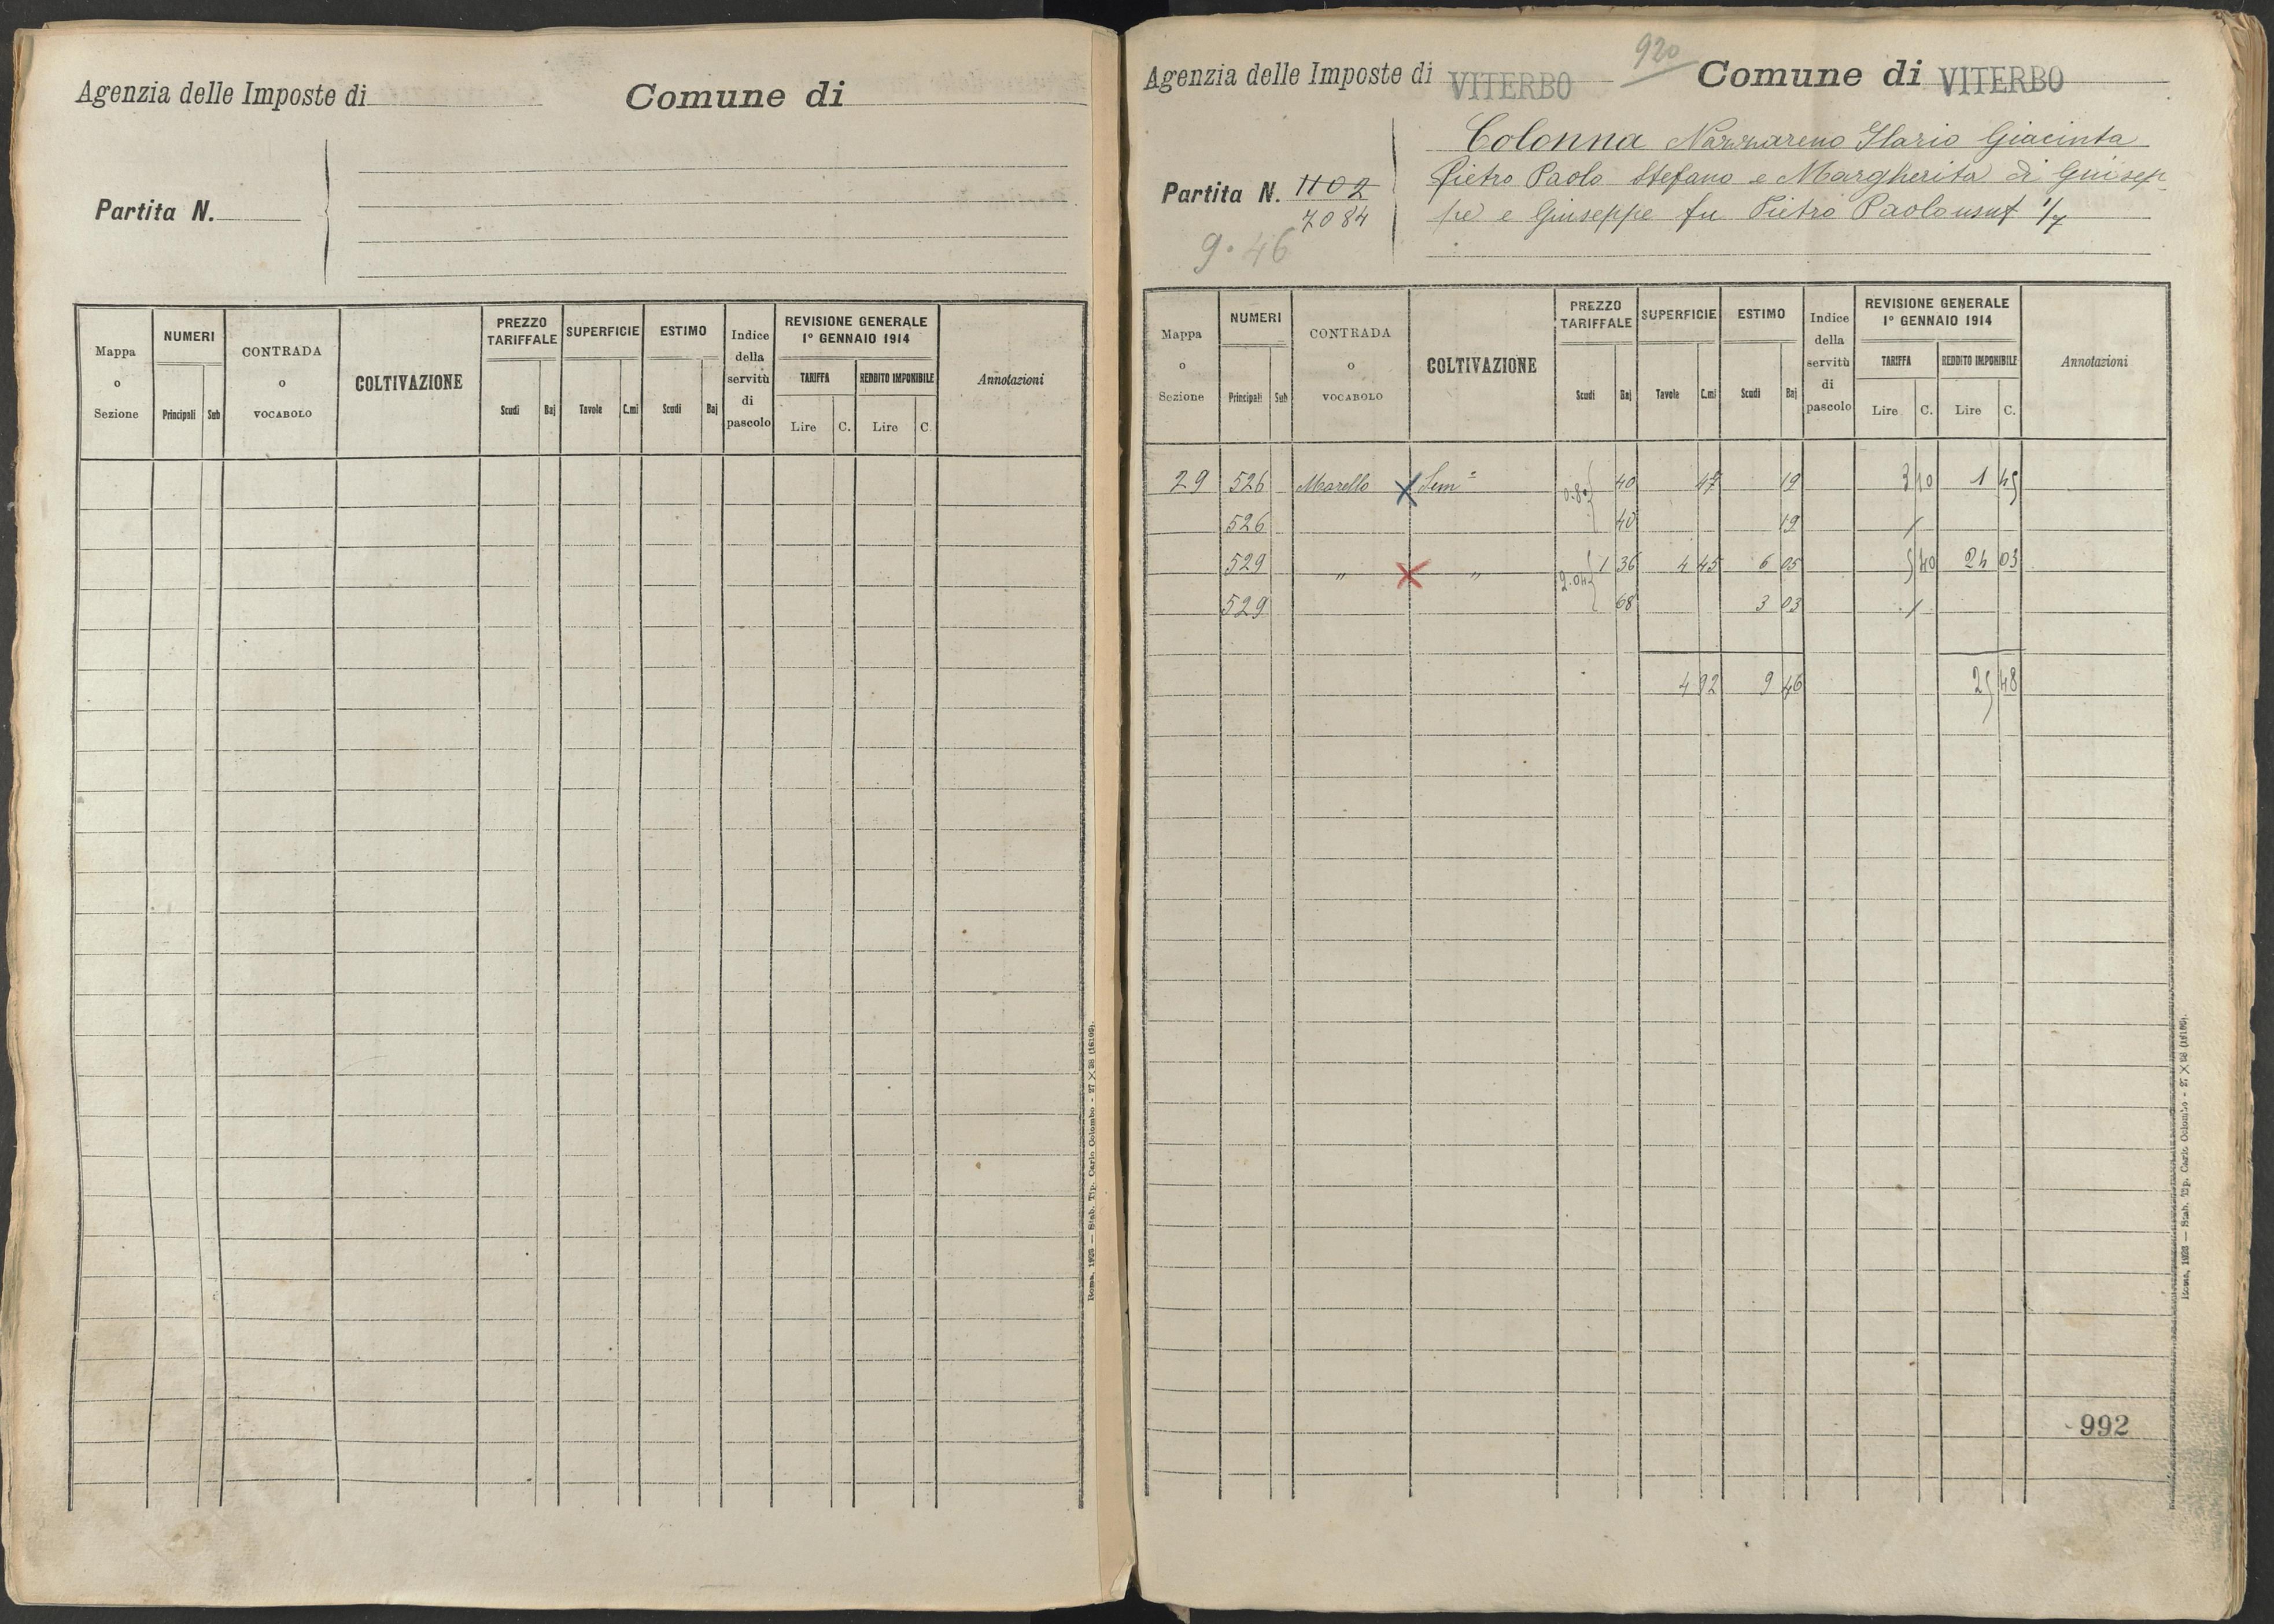 Agenzia delle Imposte di
Comune di
Partita N.
Mappa o Sezione
NUMERI
Principali Sub
CONTRADA o VOCABOLO
COLTIVAZIONE
PREZZO TARIFFALE
Scudi Baj
SUPERFICIE
Tavole C.mi
ESTIMO
Scudi Baj
Indice della servitù di pascolo
REVISIONE GENERALE
1° GENNAIO 1914
TARIFFA
Lire C.
REDDITO IMPONIBILE
Lire C.
Annotazioni
Roma, 1923 — Stab. Tip. Carlo Colombo - 27 X 38
920
Agenzia delle Imposte di VITERBO
Comune di VITERBO
Partita N. 1102
7084
9.46
Colonna Nazzareno Ilario Giacinta
Pietro Paolo Stefano e Margherita di Giusep
pe e Giuseppe fu Pietro Paolo usuf 1/7
Mappa o Sezione
NUMERI
Principali Sub
CONTRADA o VOCABOLO
COLTIVAZIONE
PREZZO TARIFFALE
Scudi Baj
SUPERFICIE
Tavole C.mi
ESTIMO
Scudi Baj
Indice della servitù di pascolo
REVISIONE GENERALE
1° GENNAIO 1914
TARIFFA
Lire C.
REDDITO IMPONIBILE
Lire C.
Annotazioni
29 526 Marello X Sem 0.80 40 47 19 3 10 1 45
526 40 19 /
529 " X " 2.04 1 36 4 45 6 05 5 40 24 03
529 68 3 03 /
4 92 9 46 25 48
992
Roma, 1923 — Stab. Tip. Carlo Colombo - 27 X 38